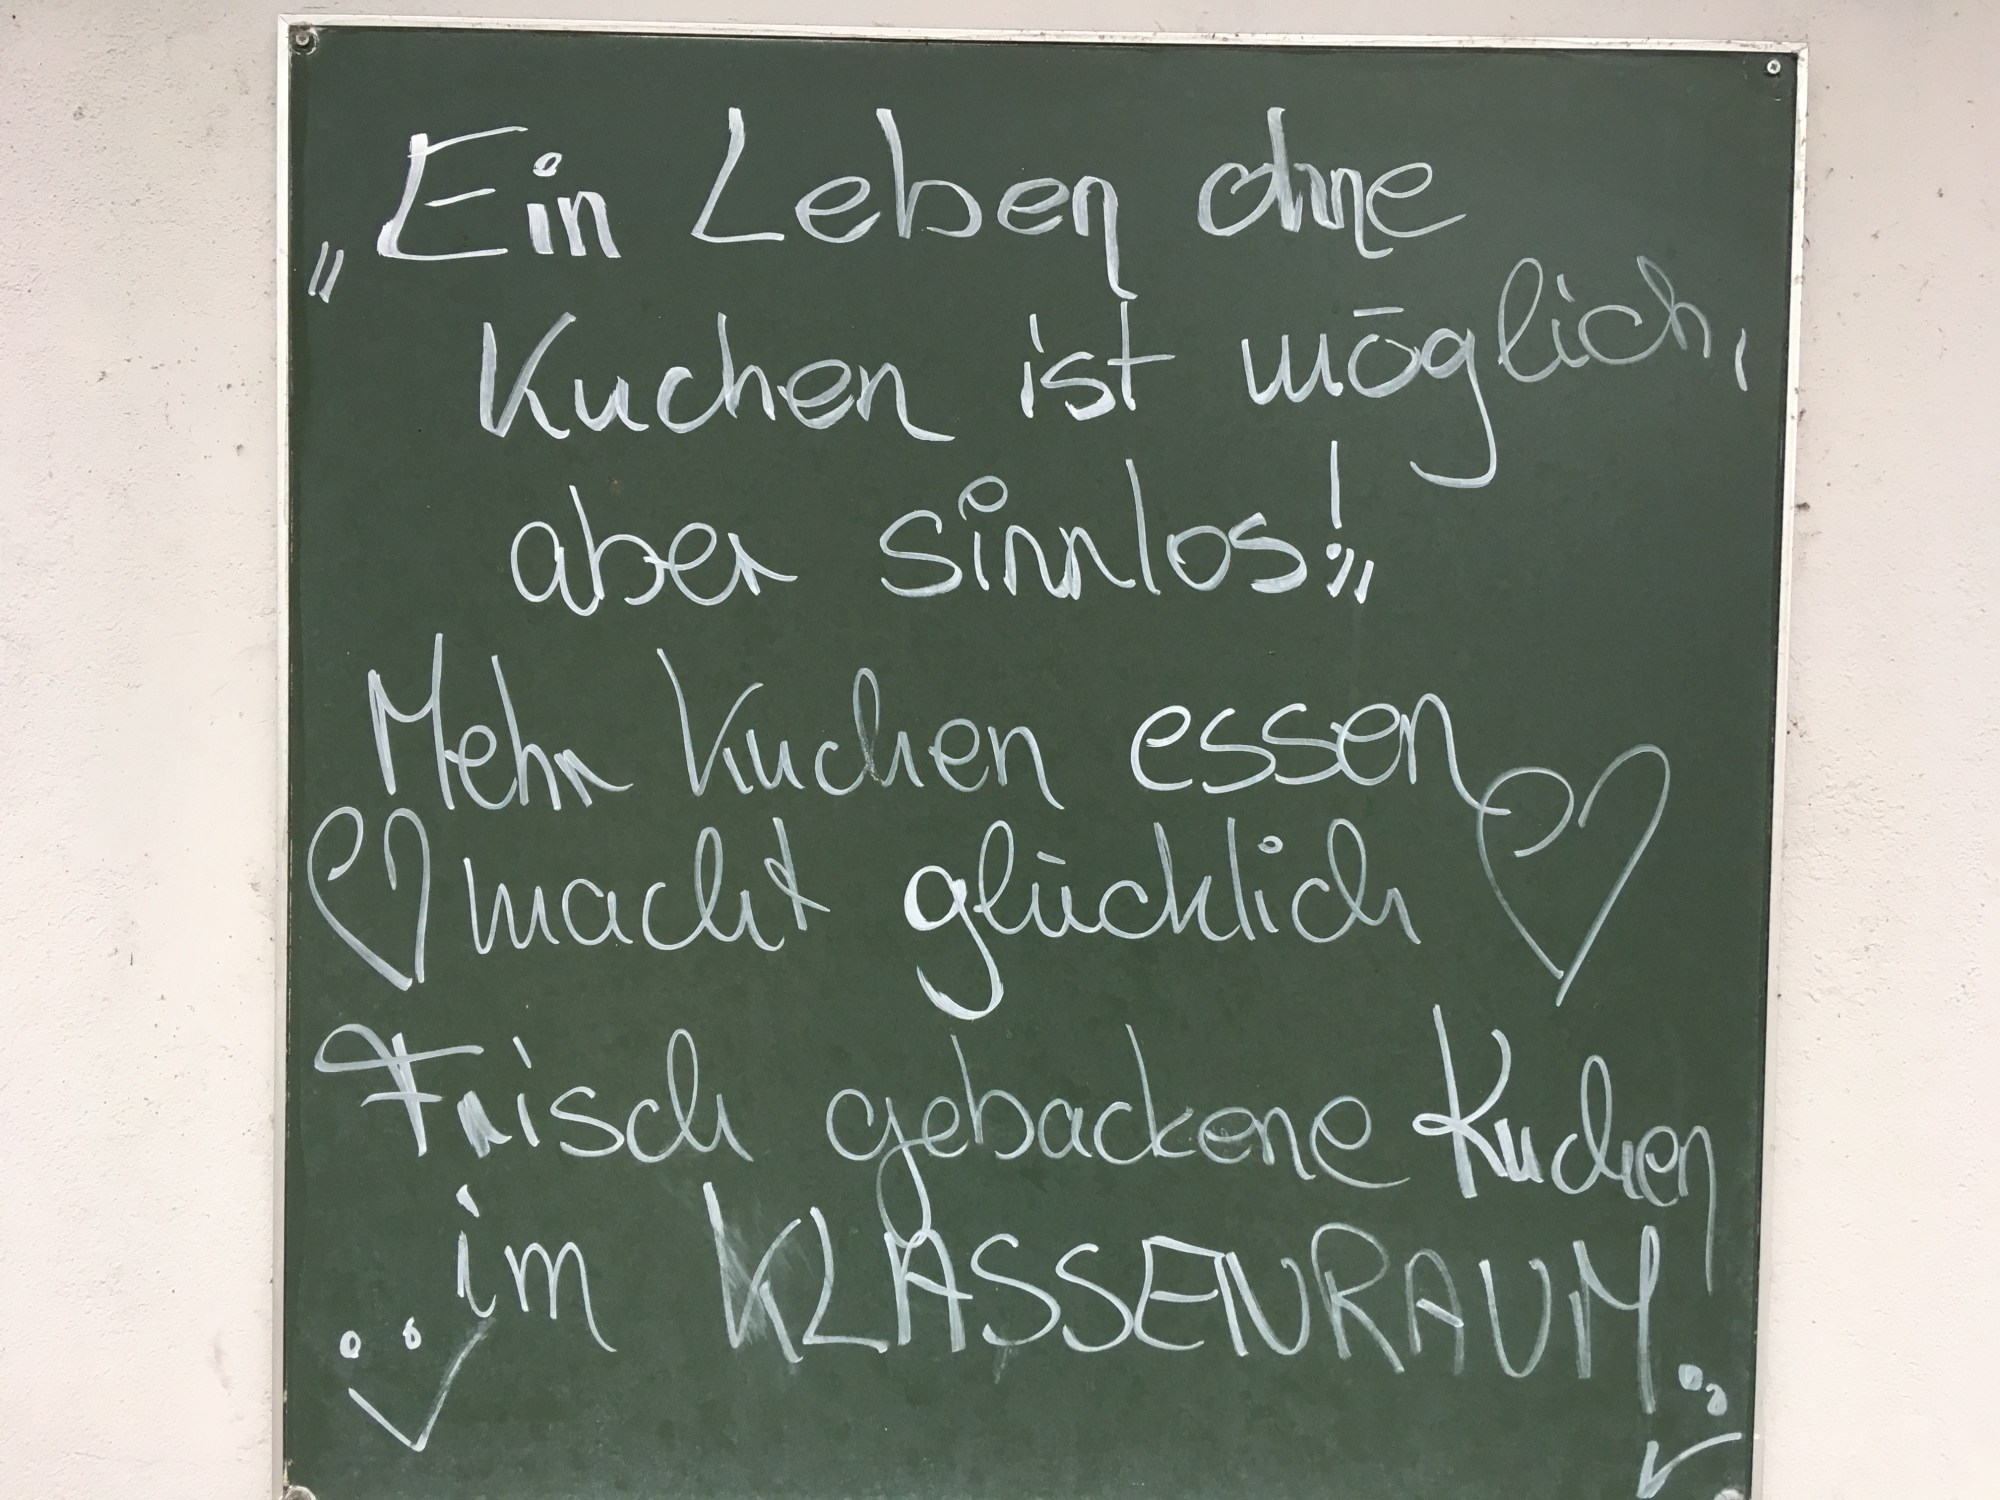 „Ein Leben ohne
Kuchen ist möglich,
aber sinnlos!"
Mehr Kuchen essen
♡ macht glücklich ♡
Frisch gebackene Kuchen
im KLASSENRAUM